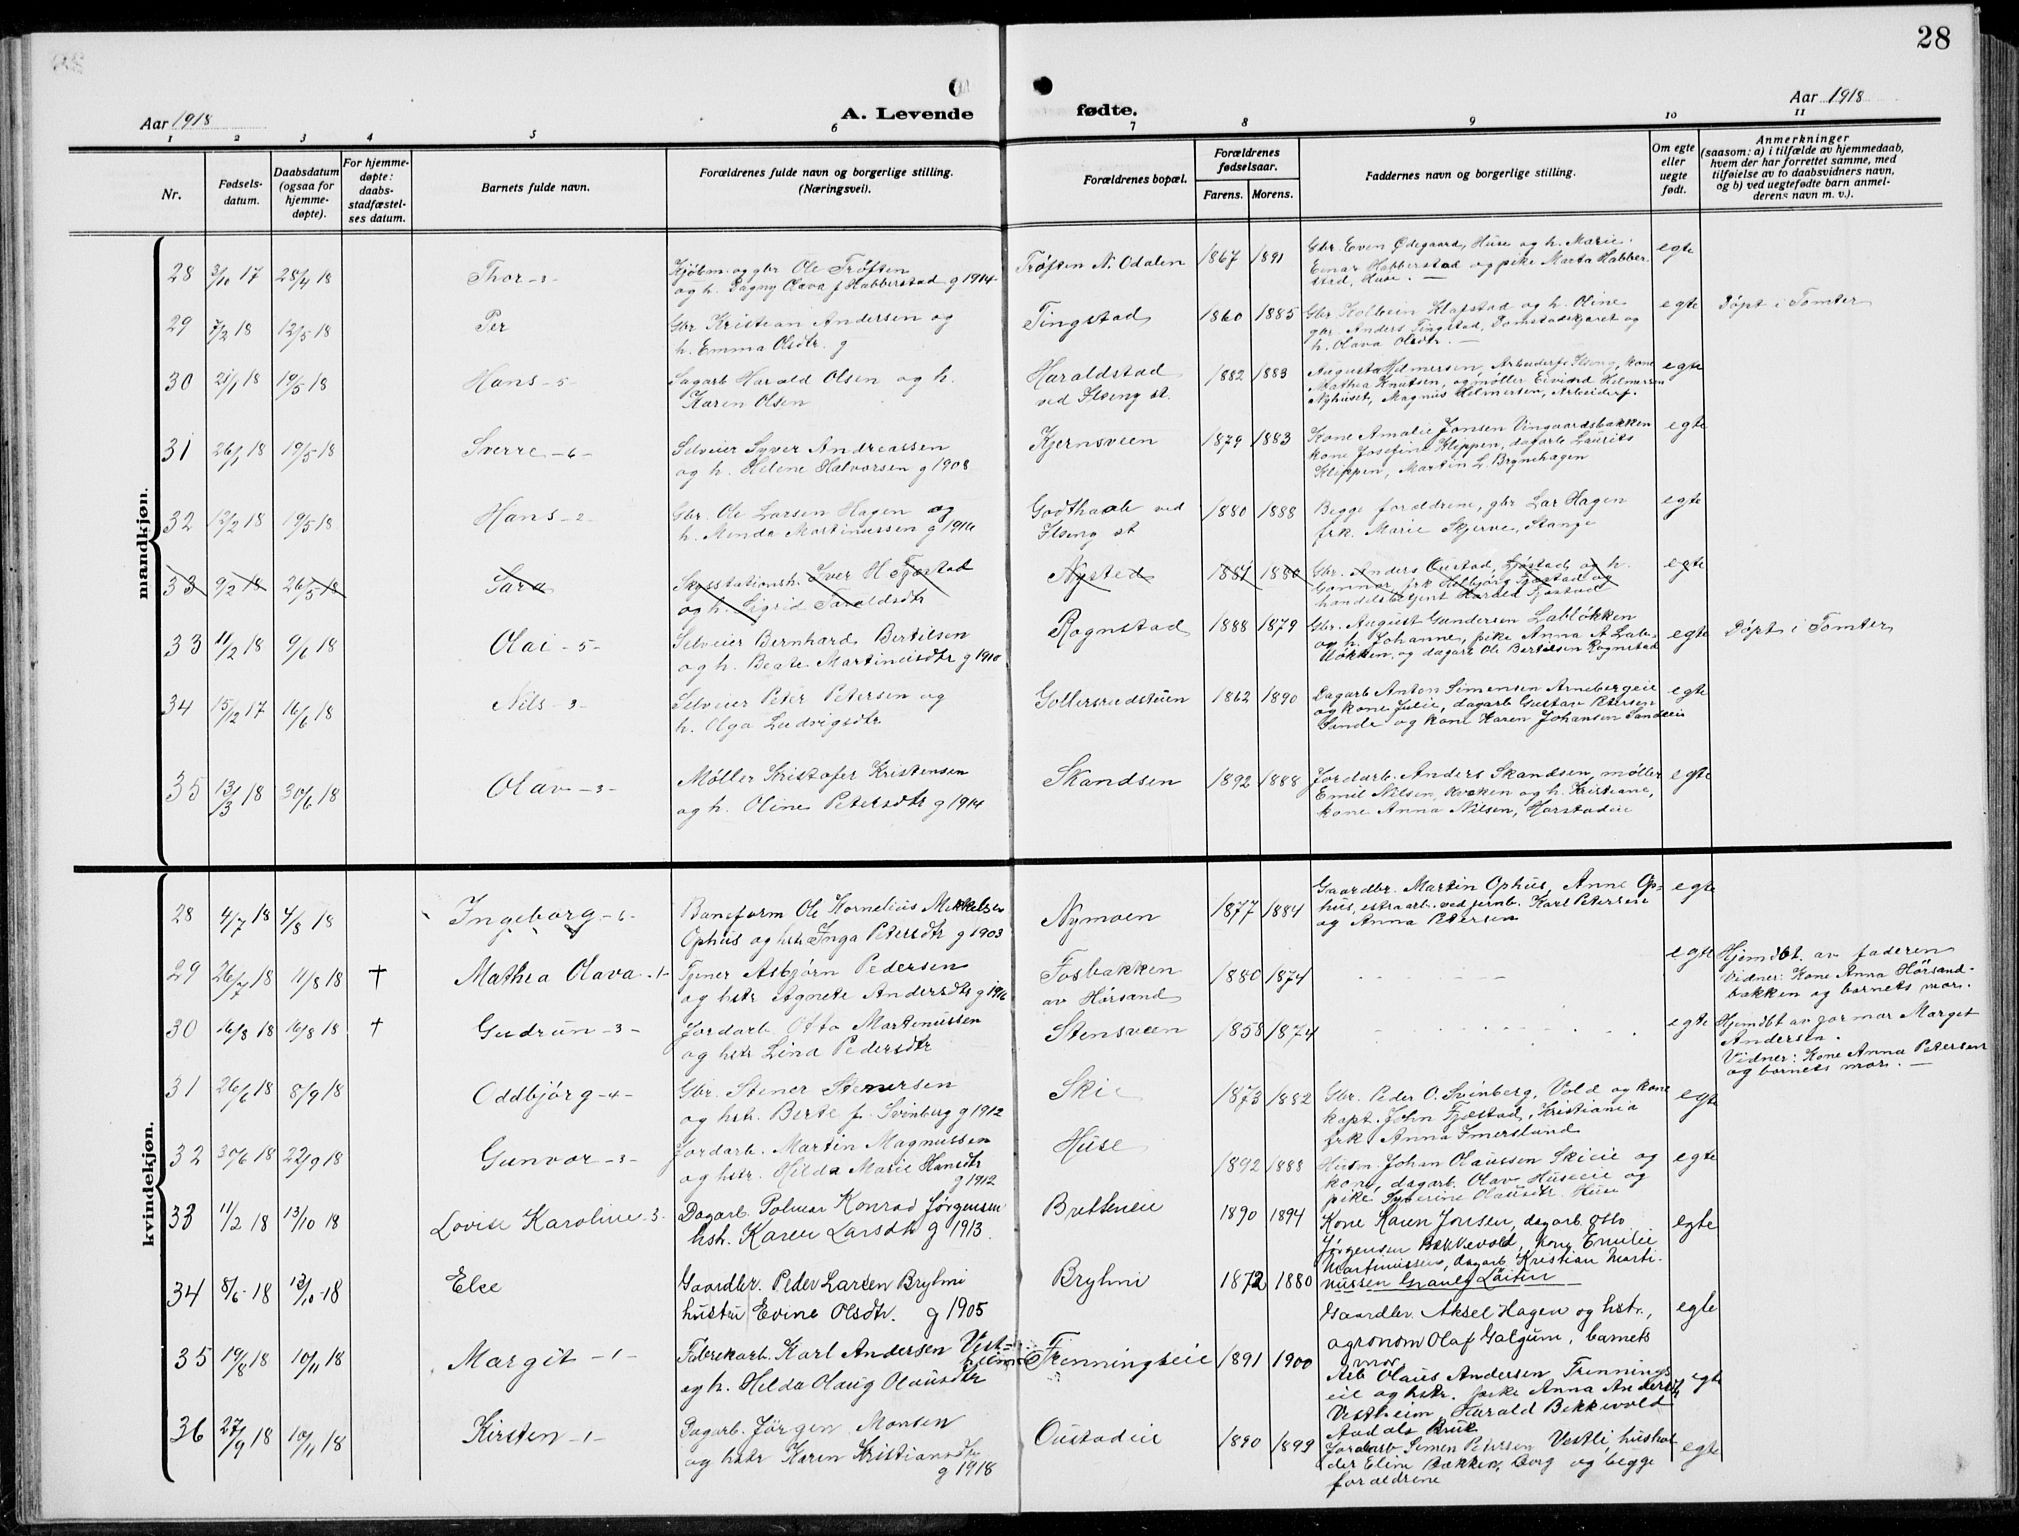 28
Aar 1918
A. Levende
fødte.
Aar 1918
1 2 3 4 5 6 7 8 9 10 11
Nr.
Fødsels-
datum.
Daabsdatum
(ogsaa for
hjemme-
døpte).
For hjemme-
døpte:
daabs-
stadfæstel-
ses datum.
Barnets fulde navn.
Forældrenes fulde navn og borgerlige stilling.
(Næringsvei).
Forældrenes bopæl.
Forældrenes
fødselsaar.
Farens. Morens.
Faddernes navn og borgerlige stilling.
Om egte
eller
uegte
født.
Anmerkninger
(saasom: a) i tilfælde av hjemmedaab,
hvem der har forrettet samme, med
tilføielse av to daabsvidners navn,
og b) ved uegtefødte barn anmel-
derens navn m. v.).
mandkjøn.
28 3/10 17 28/4 18 Thor -3-
Kjøbm. og gbr Ole Trøften
og h. Dagny Olava f Habberstad g 1914
Trøften N. Odalen 1867 1891
Gbr. Even Ødegaard, Huse og h. Marie.
Einar Habberstad og pike Marta Habber-
stad, Huse. —
egte
29 7/2 18 12/5 18 Per
Gbr Kristian Andersen og
h. Emma Olsdtr. g
Tingstad 1860 1885
Gbr Kolbein Klafstad og h. Oline
gbr. Anders Tingstad, Domstadkjæret og
h. Olava Olsdtr. —
egte Døpt i Tomter
30 21/1 18 19/5 18 Hans -5-
Dagarb Harald Olsen og h.
Karen Olsen
Haraldstad
ved Ilseng st. 1882 1883
Augusta Helmersen, Arbeiderf. Ilseng, kone
Mathea Knutsen, og møller Eivind Helmersen
Nyhuset, Magnus Helmersen, Arbeiderf.
egte
31 26/1 18 19/5 18 Sverre -6-
Selveier Syver Andreassen
og h. Helene Halvorsen g 1908
Kjernsveen 1879 1883
Kone Amalie Jonsen Vingaardsbakken
kone Josefine Klippen, dagarb Laurits
Klippen, Martin L. Brynehagen
egte
32 12/2 18 19/5 18 Hans -2-
Gbr. Ole Larsen Hagen og
h. Minda Martinussen g 1916
Godthaab ved
Ilseng st 1880 1888
Begge forældrene, gbr Lar Hagen
frk. Marie Skjerve, Stange
egte
33 9/2 18 26/5 18 Sara
Skysstationsh. Iver H Fjæstad
og h. Sigrid Taraldsdtr
Nysted 1881 1880
Gbr. Anders Oustad, Fjæstad, og h.
Gunnor, frk Helbjørg Fjæstad og
handelsbetjent Harald Fjæstad
egte
33 11/2 18 9/6 18 Olai -5-
Selveier Bernhard Bertilsen
og h. Beate Martinusdtr g 1910
Rognstad 1888 1879
Gbr. August Gundersen Labløkken
og h. Johanne, pike Anna A Lab-
løkken, og dagarb Ole Bertilsen Rognstad
egte Døpt i Tomter
34 15/12 17 16/6 18 Nils -3-
Selveier Peter Petersen og
h. Olga Ludvigsdtr
Gollersrudstuen 1862 1890
Dagarb Anton Simensen Arnebergeie
og kone Julie, dagarb Gustav Petersen
Sande og kone Karen Johansen Sandeeie
egte
35 13/3 18 30/6 18 Olav -3-
Møller Kristofer Kristensen
og h. Oline Petersdtr g 1914
Skandsen 1892 1888
Jordarb. Anders Skandsen, møller
Emil Nilsen, og h. Kristiane,
kone Anna Nilsen, Horstadeie
egte
kvindekjøn.
28 4/7 18 4/8 18 Ingeborg -6-
Baneform Ole Kornelius Mikkelsen
Ophus og hstr Inga Petersdtr g 1903
Nymoen 1877 1884
Gaardbr. Martin Ophus, Anne Op-
hus, extraarb. ved jernb. Karl Petersen
og Anna Petersen
egte
29 26/7 18 11/8 18 † Mathea Olava -1-
Tjener Asbjørn Pedersen
og hstr Agnete Andersdtr g 1916
Fosbakken
av Hørsand 1880 1874
egte Hjemdøt. av faderen
Vidner: Kone Anna Hørsand-
bakken og barnets mor.
30 16/8 18 16/8 18 † Gudrun -3-
Jordarb. Otto Martinussen
og hstr Lina Pedersdtr
Stensveen 1858 1874
egte Hjemdøt av jormor Marget
Andersen.
Vidner: Kone Anna Petersen
og barnets mor. —
31 26/6 18 8/9 18 Oddbjørg -4-
Gbr. Stener Stenersen
og hstr. Berte f. Svinberg g 1912
Skie 1873 1882
Gbr. Peder O. Svinberg, Vold og kone
kapt. John Fjæstad, Kristiania
frk Anna Imerslund
egte
32 30/6 18 22/9 18 Gunvor -3-
Jordarb. Martin Magnussen
og hstr. Hilda Marie Hansdtr
g 1912
Huse 1892 1888
Husm. Johan Olaussen Skieie og
kone, dagarb. Olav Huseeie og
pike Syverine Olausdtr. Huse
egte
33 11/2 18 13/10 18 Lovise Karoline -3-
Dagarb Polmar Konrad Jørgensen
hstr. Karen Larsdtr g 1913.
Bretteneie 1890 1894
Kone Karen Jonsen, dagarb. Otto
Jørgensen Bekkevold, kone Emilie
Martinussen, dagarb. Kristian Marti-
nussen Løiten
egte
34 8/6 -18 13/10 -18 Else
Gaardbr. Peder Larsen Bryhni
hustru Evine Olsdtr. g 1905
Bryhni 1872 1880
Gaardbr. Aksel Hagen og hstr.,
agronom Olaf Galgum, barnets
mor
egte
35 19/8 18 10/11 18 Margit -1-
Fabrikarb. Karl Andersen Vest-
heim
og h. Hilda Olaug Olausdtr
Frenningseie 1891 1900
Arb Olaus Andersen Frennings-
eie og hstr. pike Anna Andersdtr
Vestheim Harald Bekkevold
Aadals Bruk
egte
36 27/9 18 10/11 18 Kirsten -1-
Dagarb. Jørgen Monsen
og hstr Karen Kristiansdtr
g 1918
Oustadeie 1890 1899
Jordarb Simen Petersen Vestli, hushol
der Eline Bakken, Borg og begge
forældrene
egte